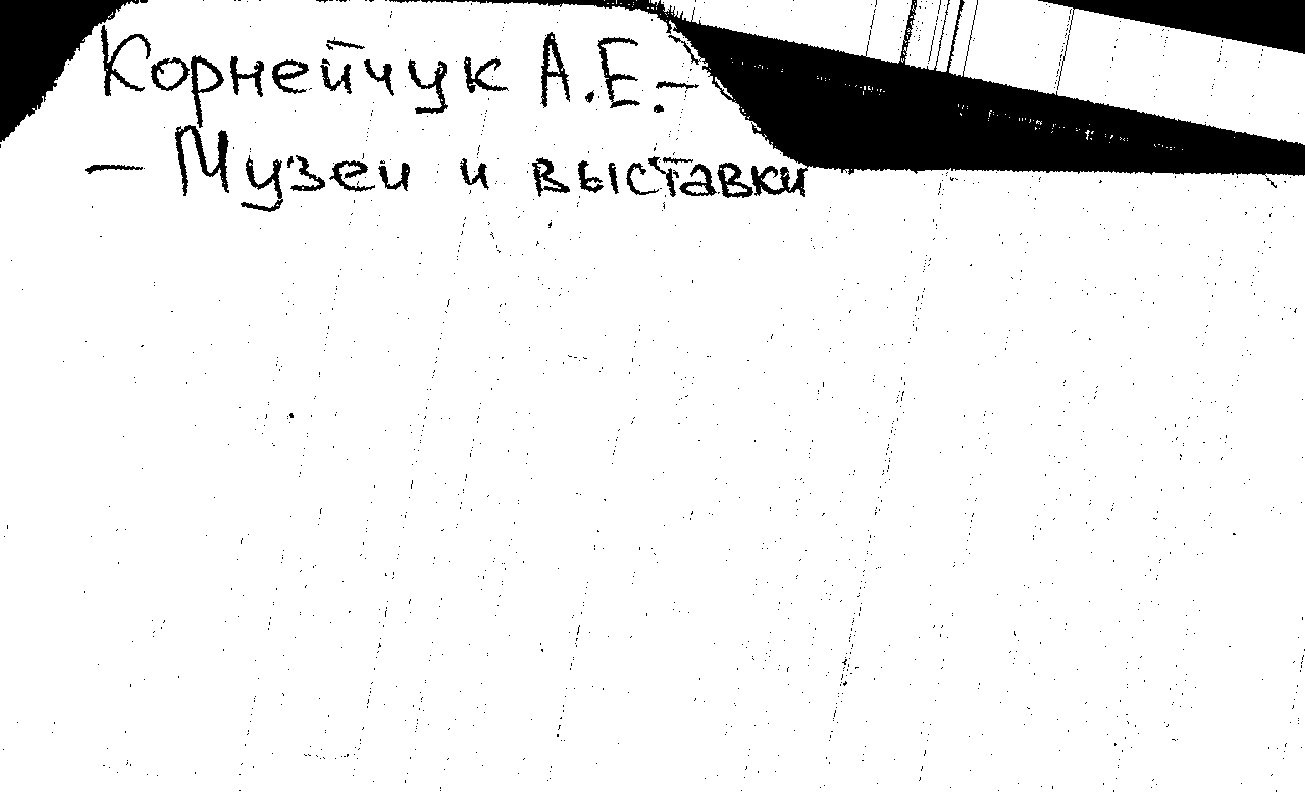 Корнейчук А.Е.-
- Музеи и выставки